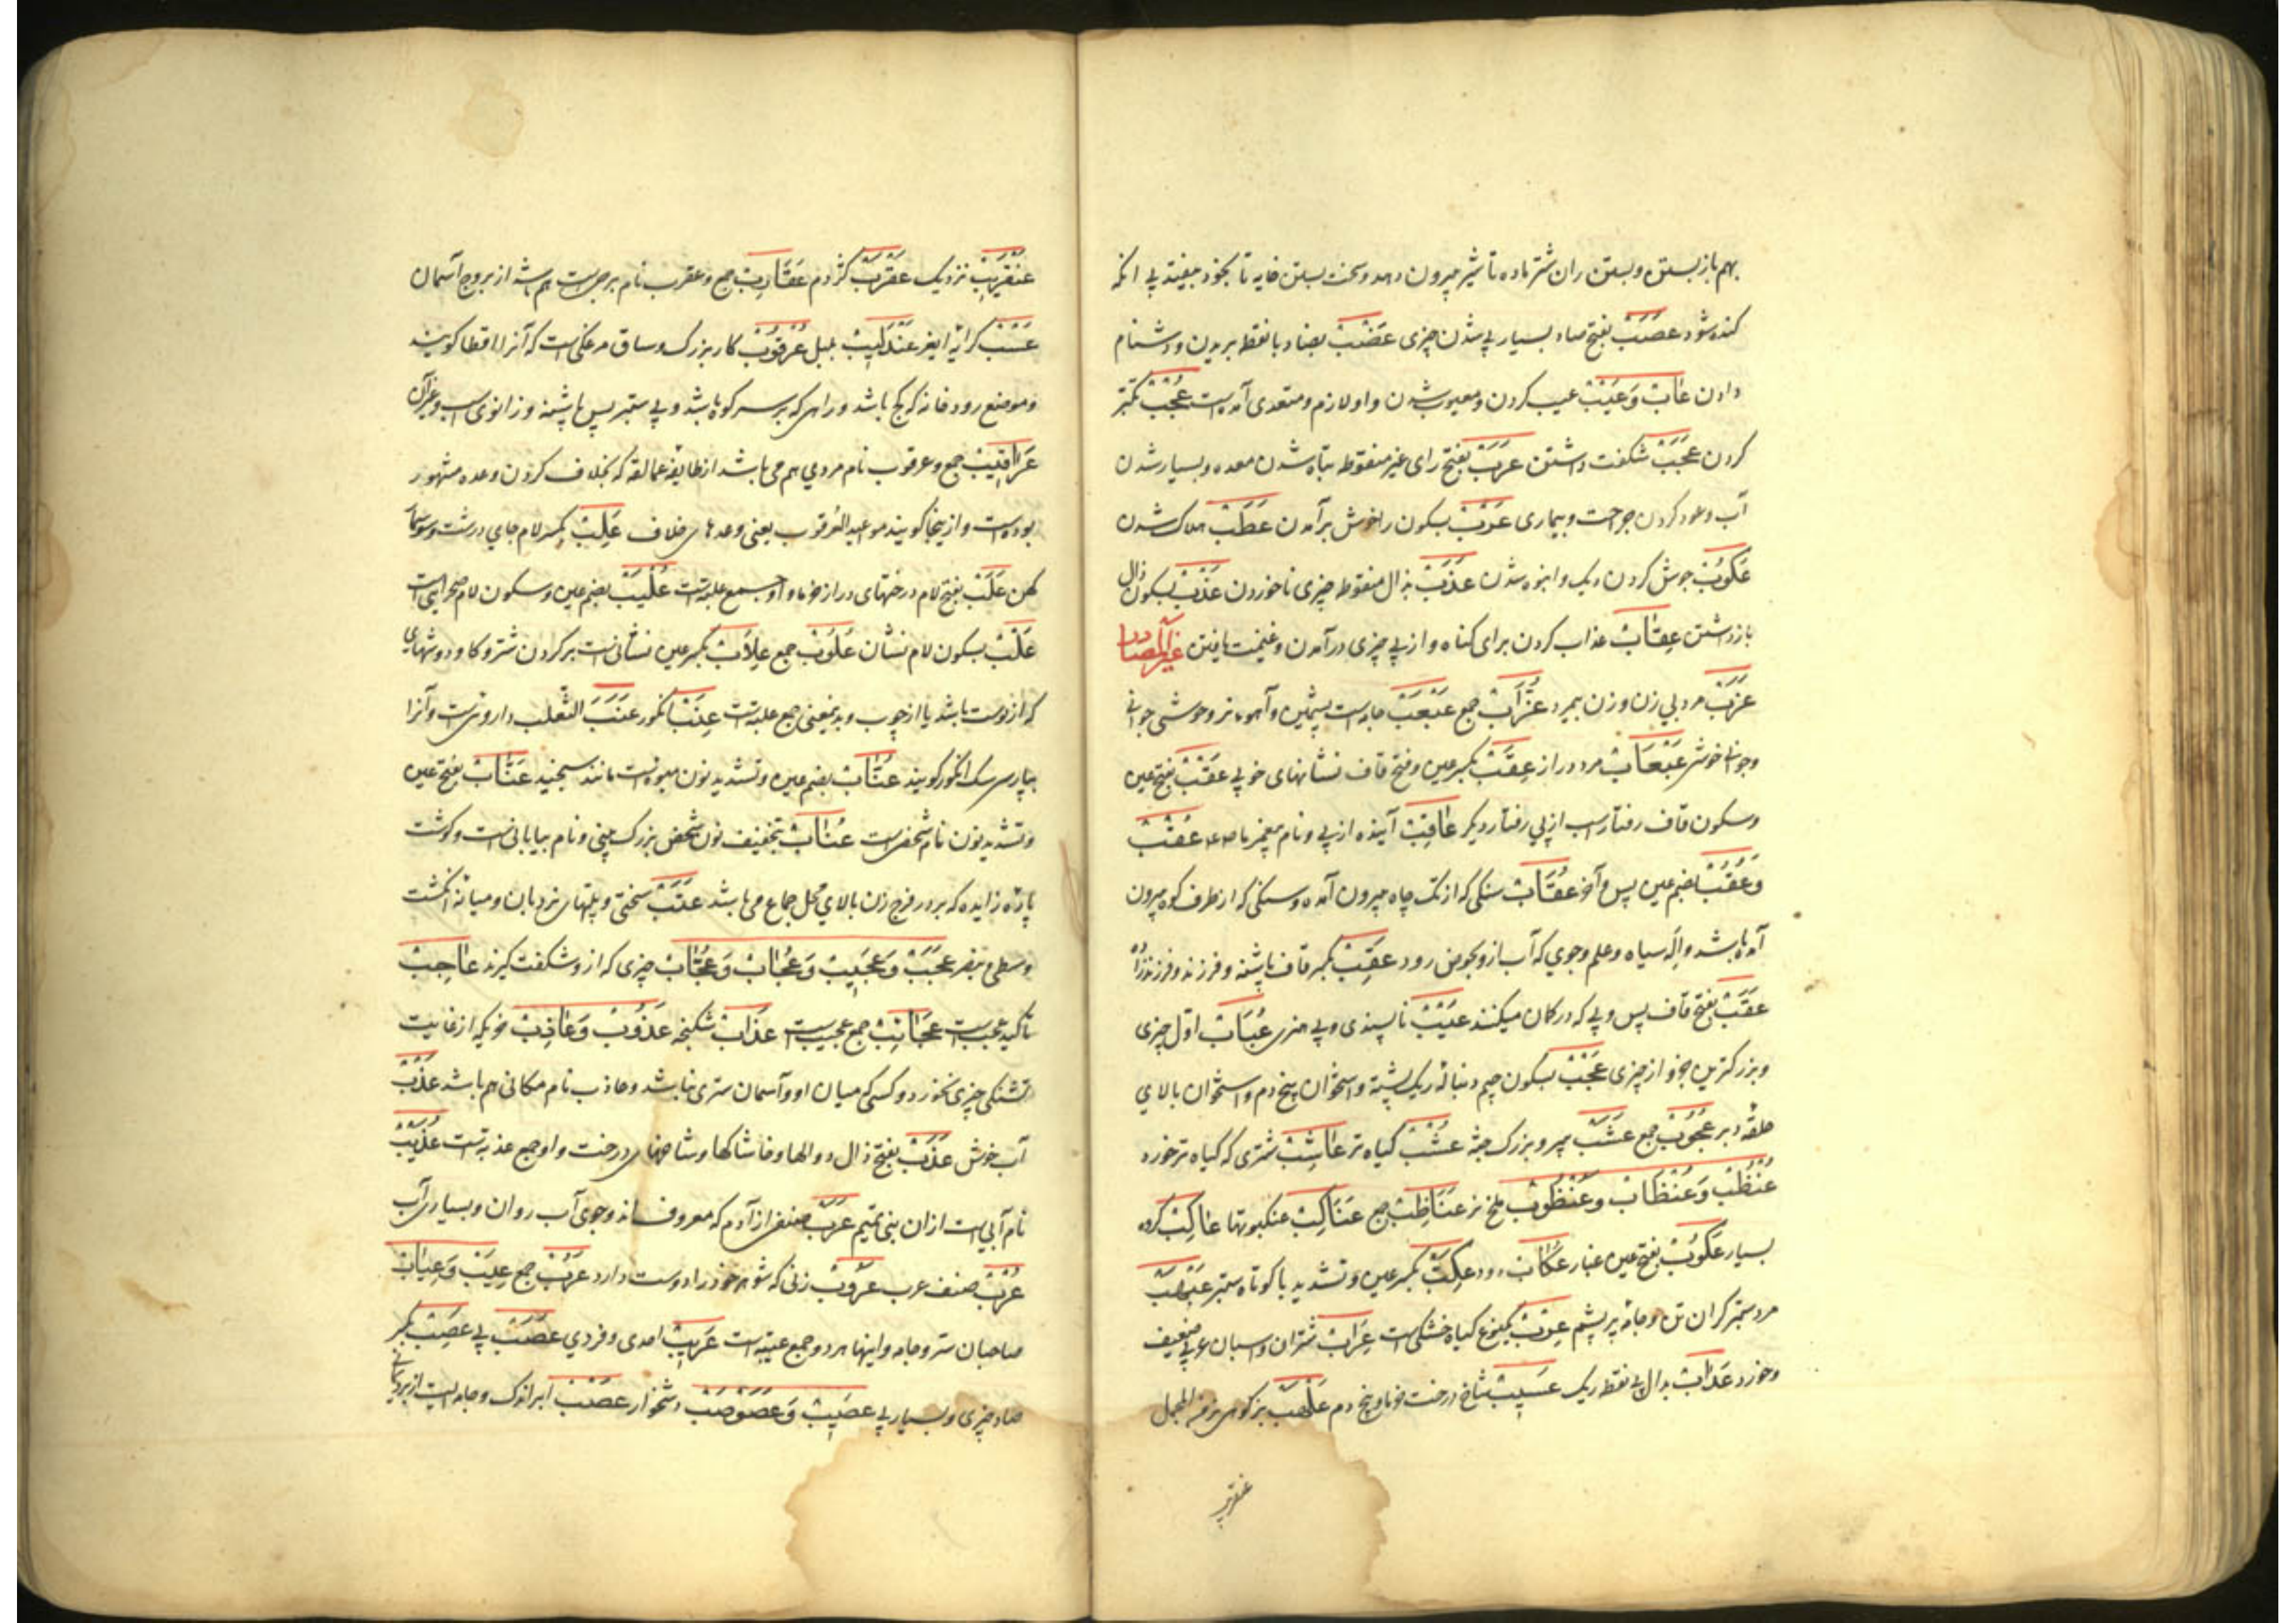 بهم باز بستن و بستن ران شتر ماده تا شیر بیرون دهد و سخت بستن خایه تا بخود بیفتد بی آنکه
کنده شود عَصَبْ بفتح صاد بسیار پی شدن چیزی عَضْبْ بضاد با نقطه بریدن و دشنام
دادن عَابْ وَ عَیْبْ عیب کردن و معیوب شدن و او لازم و متعدی آمده است عُجْبْ تکبّر
کردن عَجَبْ شکفت داشتن عَرَبْ بفتح رای غیر منقوطه تباه شدن معده و بسیار شدن
آب و عود کردن جراحت و بیماری عَرْبْ بسکون را خوش برآمدن عَطَبْ هلاک شدن
عُکوُبْ جوش کردن دیک و انبوه شدن عَذَبْ بذال منقوطه چیزی ناخوردن عَذْبْ بسکون ذال
بازداشتن عِقَابْ عذاب کردن برای کناه و از پی چیزی درآمدن و غنیمت یافتن غیر المصادر
عَزَبْ مرد بی زن و زن بیمرد عُزَّابْ جمع عَبْعَبْ جامه ایست پشمین و آهوء نر و خوشی جوانی
و جوانی خوش عَبْعَابْ مرد دراز عِقَبْ بکسر عین و فتح قاف نشانهای خوبی عَقْبْ بفتح عین
و سکون قاف رفتار اسب از پی رفتار دیگر عَاقِبْ آینده از پی و نام پیغمبر ما صلعم عُقْبْ
وَ عُقُبْ بضم عین پس و آخر عُقَابْ سنکی که از تک چاه بیرون آمده و سنکی که از طرف کوه بیرون
آمده باشد و اله سیاه و علم و جوی که آب ازو بحوض رود عَقِبْ بکسر قاف پاشنه و فرزند و فرزندزاده
عَقَبْ بفتح قاف پس و پی که در کمان میکنند عَیْبْ ناپسندی و بی هنری عُبَابْ اوّل چیزی
و بزرکترین جزو از چیزی عَجْبْ بسکون جیم دنباله ریک پشته و استخوان بیخ دم و استخوان بالای
حلقه دبر عُجُوبْ جمع عَشَبْ پیر و بزرک جثه عُشْبْ کیاه تر عَاشِبْ شتری که کیاه تر خورد
عُنْظُبْ وَ عُنْظَابْ وَ عُنْظُوبْ ملخ نر عَنَاظِبْ جمع عَنَاکِبْ عنکبوتها عَاکِبْ کروه
بسیار عَکُوبْ بفتح عین غبار عُکَابْ دود عِکَبّْ بکسر عین و تشدید با کوتاه ستبر عَبْهَبْ
مرد ستبر کران تن و جامه پر پشم عِرْبْ یکنوع کیاه خشکی است عِرَابْ شتران و اسبان عربی ضعیف
و خورد عَدَابْ بدال بی نقطه ریک عَسِیبْ شاخ درخت خرما و بیخ دم عَلْهَبْ بز کوهی نر فی المجمل
عنقریب
عَنْقَرِیبْ نزدیک عَقْرَبْ کژدم عَقَارِبْ جمع و عقرب نام برجیست هم باشد از بروج آسمان
عَتْبْ کرانه ایغر عَنْدَلِیبْ بلبل عُرْقُوبْ کار بزرک و ساق مرغکی است که آنرا قطا کویند
و موضع رودخانه که کج باشد و راهی که بر سر کوه باشد و پی ستبر پس پاشنه و زانوی اسب و غیر آن
عَرَاقِیبْ جمع و عرقوب نام مردی هم می باشد از طایفه عمالقه که بخلاف کردن وعده مشهور
بوده است و از ینجا کویند مواعید العرقوب یعنی وعده های خلاف عَلِبْ بکسر لام جای درشت و سوسمار
کهن عَلَبْ بفتح لام درختهای دراز خرما و او جمع علبه است عُلْیَبْ بضم عین و سکون لام صحراییست
عَلْبْ بسکون لام نشان عُلُوبْ جمع عِلَابْ بکسر عین نشانی است بر کردن شتر و کاو دوشهای
که از پوست باشد یا از چوب و بدینمعنی جمع علبه است عِنَبْ انکور عِنَبُ الثّعلب دارویست و آنرا
بپارسی سک انکور کویند عُنَّابْ بضم عین و تشدید نون میوه ایست مانند سنجید عَنَّابْ بفتح عین
و تشدید نون نام شخصی است عُنَابْ بتخفیف نون شخص بزرک بینی و نام بیابانی است و کوشت
پارهٔ زایده که بر در فرج زن بالای محل جماع می باشد عَتَبْ سختی و پلهای نردبان و میانهٔ انکشت
وسطی و بنصر عَجَبْ وَ عَجِیبْ وَ عُجَابْ وَ عُجَّابْ چیزی که ازو شکفت کیرند عَاجِبْ
تاکید عجب است عَجَائِبْ جمع عجیب است عَذَابْ شکنجه عَذُوبْ وَ عَاذِبْ خریکه از غایت
تشنکی چیزی نخورد و کسی که میان او و آسمان ستری نباشد و عاذب نام مکانی هم باشد عَذْبْ
آب خوش عَذَبْ بفتح ذال دوالها و خاشاکها و شاخهای درخت و او جمع عذبه است عُذَیْبْ
نام آبی است از ان بنی تمیم عَرَبْ صنفی از آدم که معروف اند و جوی آب روان و بسیاری آب
عُرْبْ صنف عرب عَرُوبْ زنی که شوهر خود را دوست دارد عُرُبْ جمع عِیَبْ وَ عِیَابْ
صاحبان ستر و جامه و اینها هر دو جمع عیبه است عَرِیبْ احدی و فردی عَصَبْ پی عَصِبْ بکسر
صاد چیزی و بسیار پی عَصِیبْ وَ عَصَوْصَبْ دشخوار عَصْبْ ابر اندک و جامه ایست از برد یمانی